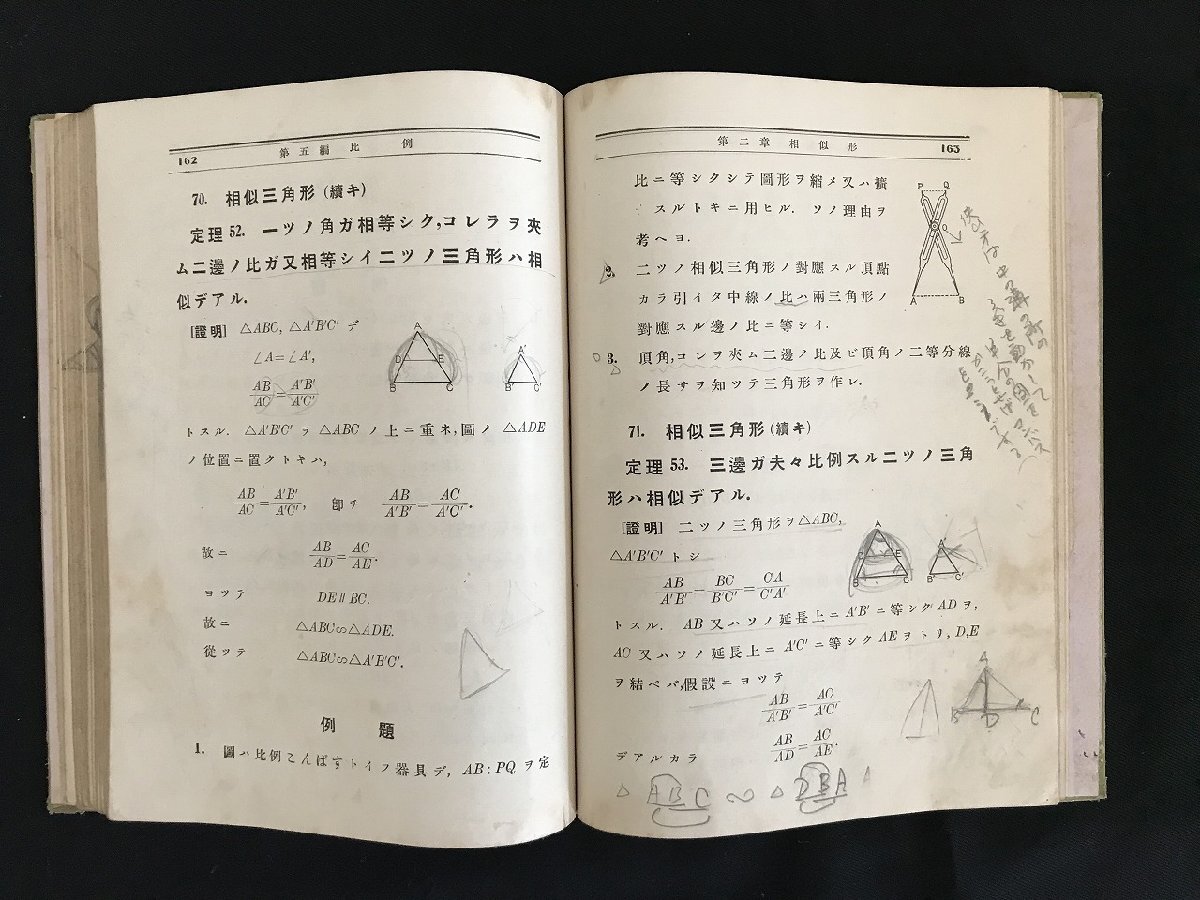 162 第五編 比例
70. 相似三角形 (續キ)
定理 52. 一ツノ角ガ相等シク,コレラヲ夾
ム二邊ノ比ガ又相等シイ二ツノ三角形ハ相
似デアル.
[證明] △ABC, △A'B'C' デ
∠A=∠A',
AB/AC = A'B'/A'C'
トスル. △A'B'C' ヲ △ABC ノ上ニ重ネ,圖ノ △ADE
ノ位置ニ置クトキハ,
AB/AC = A'B'/A'C', 卽チ AB/A'B' = AC/A'C'.
故ニ AB/AD = AC/AE.
ヨツテ DE∥BC.
故ニ △ABC∽△ADE.
從ツテ △ABC∽△A'B'C'.
A
D E
B C
A'
B' C'
例題
1. 圖ハ比例こんぱすトイフ器具デ, AB:PQ ヲ定
第二章 相似形 163
比ニ等シクシテ圖形ヲ縮メ又ハ擴
スルトキニ用ヒル. ソノ理由ヲ
考ヘヨ.
P Q
O
A B
2. 二ツノ相似三角形ノ對應スル頂點
カラ引イタ中線ノ比ハ兩三角形ノ
對應スル邊ノ比ニ等シイ.
3. 頂角,コレヲ夾ム二邊ノ比及ビ頂角ノ二等分線
ノ長サヲ知ツテ三角形ヲ作レ.
71. 相似三角形 (續キ)
定理 53. 三邊ガ夫々比例スル二ツノ三角
形ハ相似デアル.
[證明] 二ツノ三角形ヲ △ABC,
△A'B'C' トシ
AB/A'B' = BC/B'C' = CA/C'A'
A
E
B C
A'
B' C'
トスル. AB 又ハソノ延長上ニ A'B' ニ等シク AD ヲ,
AC 又ハソノ延長上ニ A'C' ニ等シク AE ヲトリ, D,E
ヲ結ベバ,假設ニヨツテ
AB/A'B' = AC/A'C'
デアルカラ AB/AD = AC/AE.
A
B D C
△ ABC ∽ △ DBA